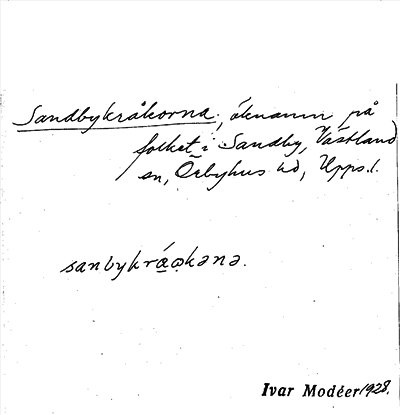 Sandbykråkorna, öknamn på
folket i Sandby, Västland
sn, Örbyhus hd, Upps. l.
sanbykråo̧kənə.
Ivar Modéer 1928.